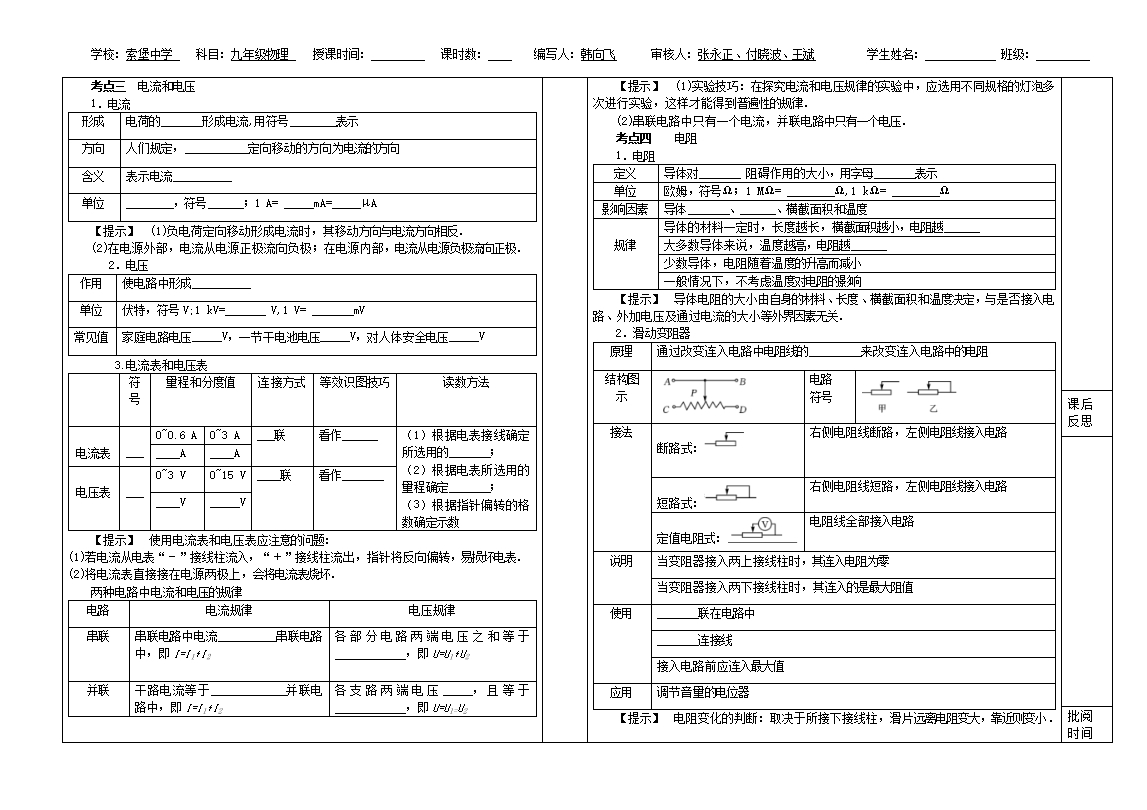 学校：索堡中学 科目：九年级物理 授课时间：________ 课时数：____ 编写人：韩向飞 审核人：张永正、付晓波、王斌 学生姓名：__________ 班级：________
考点三 电流和电压
1．电流
形成 电荷的______形成电流,用符号_______表示
方向 人们规定，_________定向移动的方向为电流的方向
含义 表示电流________
单位 _______，符号____；1 A= ____mA=____μA
【提示】 (1)负电荷定向移动形成电流时，其移动方向与电流方向相反．
(2)在电源外部，电流从电源正极流向负极；在电源内部，电流从电源负极流向正极．
2．电压
作用 使电路中形成________
单位 伏特，符号 V;1 kV=______ V,1 V= ______mV
常见值 家庭电路电压____V，一节干电池电压____V，对人体安全电压____V
3.电流表和电压表
符号 量程和分度值 连接方式 等效识图技巧 读数方法
电流表 ___ 0~0.6 A 0~3 A ___联 看作_____ （1）根据电表接线确定所选用的______；
____A ____A
（2）根据电表所选用的量程确定______；
电压表 ___ 0~3 V 0~15 V ____联 看作______
____V _____V
（3）根据指针偏转的格数确定示数
【提示】 使用电流表和电压表应注意的问题：
(1)若电流从电表“－”接线柱流入，“＋”接线柱流出，指针将反向偏转，易损坏电表．
(2)将电流表直接接在电源两极上，会将电流表烧坏．
两种电路中电流和电压的规律
电路 电流规律 电压规律
串联 串联电路中电流________串联电路中，即 I=I1+I2 各部分电路两端电压之和等于__________，即 U=U1+U2
并联 干路电流等于__________并联电路中，即 I=I1+I2 各支路两端电压____，且等于__________，即 U=U1=U2
【提示】 (1)实验技巧：在探究电流和电压规律的实验中，应选用不同规格的灯泡多
次进行实验，这样才能得到普遍性的规律．
(2)串联电路中只有一个电流，并联电路中只有一个电压．
考点四 电阻
1．电阻
定义 导体对______ 阻碍作用的大小，用字母______表示
单位 欧姆，符号Ω；1 MΩ= _______Ω,1 kΩ= _______Ω
影响因素 导体______、_____、横截面积和温度
规律 导体的材料一定时，长度越长，横截面积越小，电阻越_____
大多数导体来说，温度越高，电阻越_____
少数导体，电阻随着温度的升高而减小
一般情况下，不考虑温度对电阻的影响
【提示】 导体电阻的大小由自身的材料、长度、横截面积和温度决定，与是否接入电
路、外加电压及通过电流的大小等外界因素无关．
2．滑动变阻器
原理 通过改变连入电路中电阻线的_______来改变连入电路中的电阻
结构图示 A B P C D 电路符号 甲 乙
接法 断路式： 右侧电阻线断路，左侧电阻线接入电路
短路式： 右侧电阻线短路，左侧电阻线接入电路
定值电阻式： V 电阻线全部接入电路
说明 当变阻器接入两上接线柱时，其连入电阻为零
当变阻器接入两下接线柱时，其连入的是最大阻值
使用 ______联在电路中
______连接线
接入电路前应连入最大值
应用 调节音量的电位器
【提示】 电阻变化的判断：取决于所接下接线柱，滑片远离电阻变大，靠近则变小．
课后
反思
批阅
时间